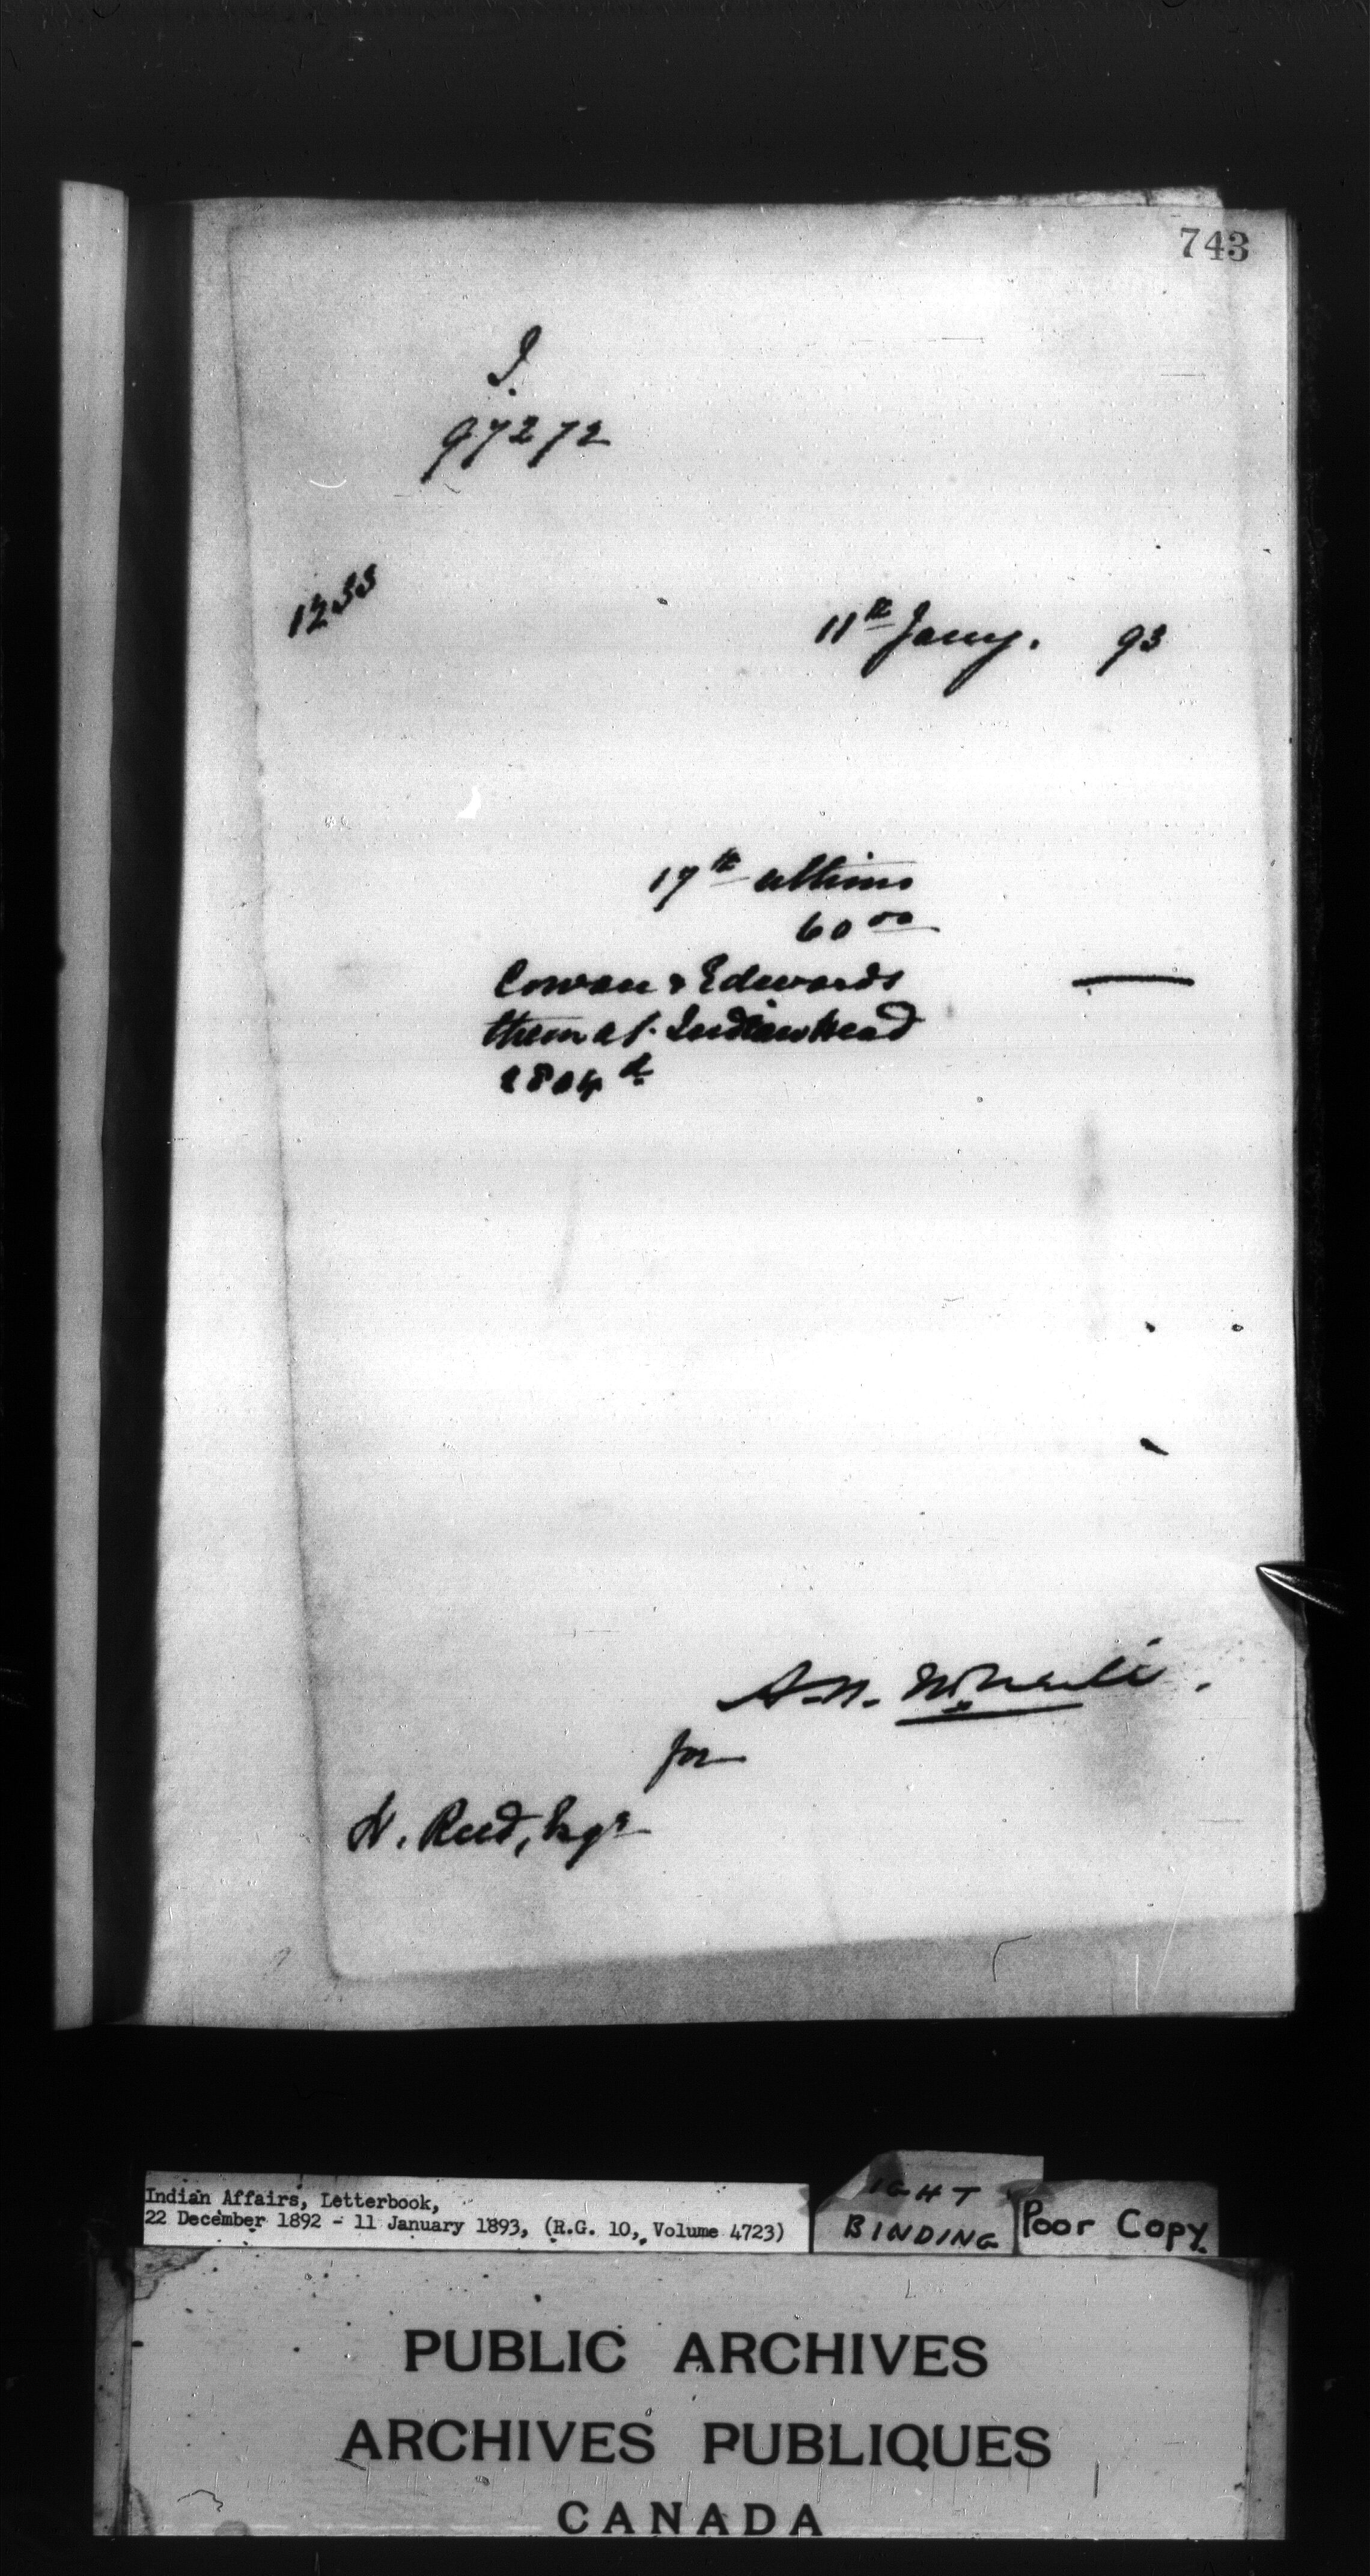 743
I.
97272
1233
11th Jany. 93
17th ultimo
60 00
Cowan & Edwards
them at Indian Head
for
H. Reed, Esqr
Indian Affairs, Letterbook,
22 December 1892 - 11 January 1893, (R.G. 10, Volume 4723)
IGHT
BINDING
Poor Copy.
PUBLIC ARCHIVES
ARCHIVES PUBLIQUES
CANADA